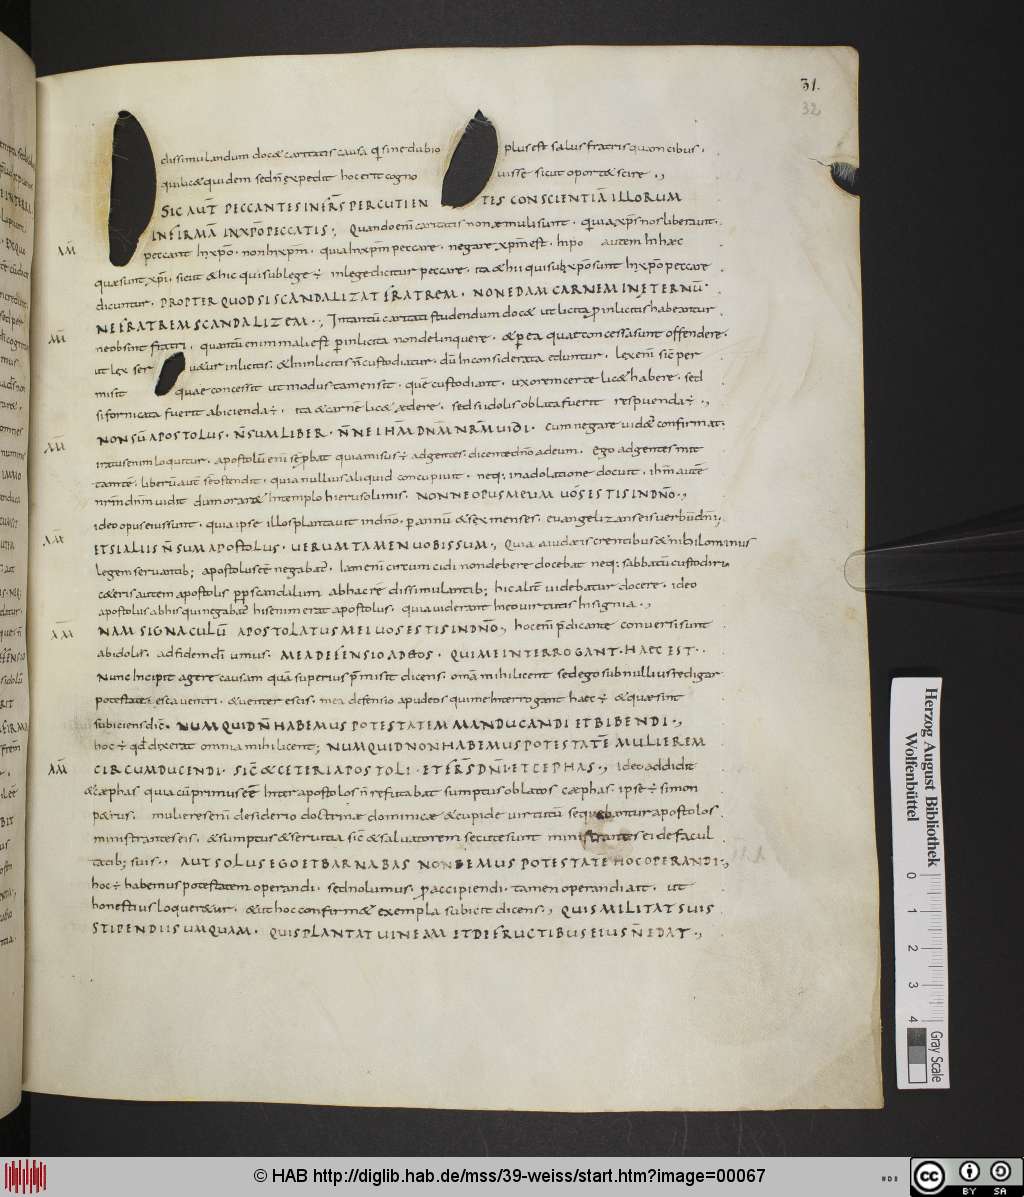 31.
32
dissimulandum docet caritatis causa qi sine dubio plus est salus fratris quam cibus.
qui licet quidem sed ñ expedit hoc erit cogno uisse sicut oportet scire.,
SIC AUT̄ PECCANTES IN FR̄S PERCUTIEN TES CONSCIENTIĀ ILLORUM
INFIRMĀ IN XP̄O PECCATIS; Quando enī caritatis non aemuli sunt. quia xp̄s nos liberauit.
peccant in xp̄o. non in xp̄m. quia in xp̄m peccare. negare xp̄m est. In xp̄o autem In haec
quae sunt xp̄i. sicut & hic qui sub lege ÷ in lege dicitur peccare. ita & hii qui sub xp̄o sunt In xp̄o peccare
dicuntur. PROPTER QUOD SI SCANDALIZAT FRATREM. NON EDAM CARNEM IN ETERNŪ.
NE FRATREM SCANDALIZEM.; In tantū caritati studendum docet ut licita p inlicitis habeantur
ne obsint fratri. quantū enim mali est p inlicita non delinquere. & p ea quae concessa sunt offendere.
ut lex ser uaetur inlicitis. & In inlicitis ñ custodiatur. dū Inconsiderata eduntur. lex enī sic per
misit quae concessit ut modus tamen sit. quē custodiant. uxorem certe licet habere. sed
si fornicata fuerit abicienda ÷. ita & carnē licet aedere. sed si idolis oblata fuerit respuenda ÷.,
NON SŪ APOSTOLUS. Ñ SUM LIBER. Ñ NE IHM̄ DN̄M NR̄M UIDI. cum negare uidetur confirmat.
iratus enim loquitur. apostolū enī se pbat quia misus ÷ ad gentes. dicente dn̄o ad eum. ego ad gentes mit
tam te. liberū aut̄ se ostendit. quia nullius aliquid concupiuit. neq; in adolatione docuit. ihm̄ autē
nr̄m dn̄m uidit dum oraret In templo hierusolimis. NONNE OPUS MEUM UOS ESTIS IN DN̄O.,
ideo opus eius sunt. quia ipse illos plantauit in dn̄o. p annū & sex menses. euangelizans eis uerbū dn̄i,
ET SI ALIIS Ñ SUM APOSTOLUS. UERUM TAMEN UOBIS SUM., Quia a iudaeis credentibus & nihilominus
legem seruantib; apostolus cē negabatr̄. Iam enī circumcidi non debere docebat neq; sabbatū custodiri,
ceteris autem apostolis pp scandalum ab hac re dissimulantib; hic alit̄ uidebatur docere. ideo
apostolus ab his qui negabat̄ his enim erat apostolus. quia uiderant In eo uirtutis hi signia.,
NAM SIGNACULŪ APOSTOLATUS MEI UOS ESTIS IN DN̄O, hoc enī p̄dicante conuersi sunt
ab idolis. ad fidem dī unius. MEA DEFENSIO AD EOS. QUI ME INTERROGANT. HAEC EST..
Nunc Incipit agere causam quā superius p̄misit dicens. omā mihi licent sed ego sub nullius redigar
potestate. esca uentri. & uenter escis. mea defensio apud eos qui me Interrogant haec ÷ & quae sint
subiciens dic̄. NUMQUID Ñ HABEMUS POTESTATEM MANDUCANDI ET BIBENDI.,
hoc ÷ qd̄ dixerat omnia mihi licent; NUMQUID NON HABEMUS POTESTATĒ MULIEREM
CIRCUMDUCENDI. SIC̄ & CETERI APOSTOLI. ET FR̄S DN̄I. ET CEPHAS., Ideo addidit
& caephas quia cū primus cēt Inter apostolos ñ refutabat sumptus oblatos caephas. ipse ÷ simon
petrus. mulieres enī desiderio doctrinae dominicae & cupide uirtutū sequebantur apostolos
ministrantes eis, & sumptus & seruitia sic̄ & saluatorem secute sunt ministrantes ei de facul
tatib; suis., AUT SOLUS EGO ET BARNABAS NON HABEMUS POTESTATĒ HOC OPERANDI.,
hoc ÷ habemus potestatem operandi. sed nolumus. p accipiendi. tamen operandi ait. ut
honestius loqueretur. & ut hoc confirmet exempla subicit dicens., QUIS MILITAT SUIS
STIPENDIIS UMQUAM. QUIS PLANTAT UINEAM ET DE FRUCTIBUS EIUS Ñ EDAT.,
Herzog August Bibliothek
Wolfenbüttel
0 1 2 3 4
Gray Scale
© HAB http://diglib.hab.de/mss/39-weiss/start.htm?image=00067
cc BY SA